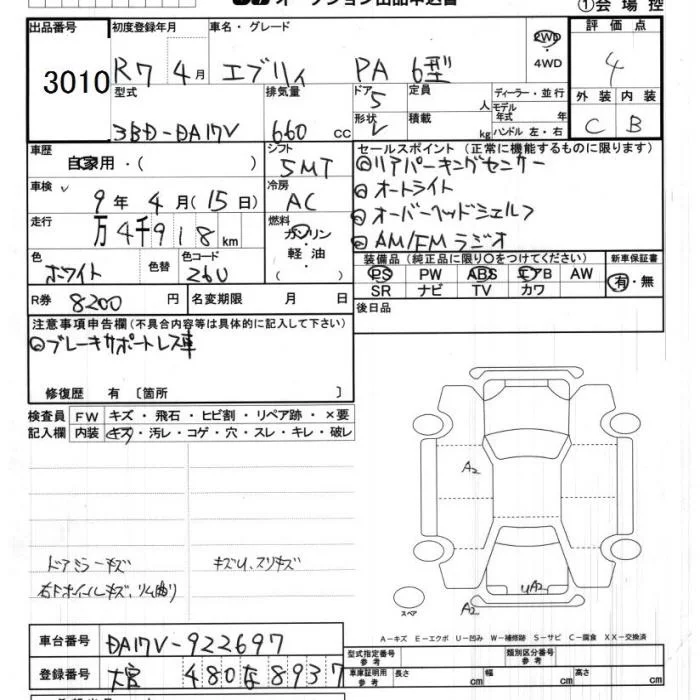 オークション出品申込書
①会場控
出品番号 3010
初度登録年月 R7 4月
車名・グレード エブリィ PA 6型
2WD・4WD
評価点 4
外装 C 内装 B
型式 3BD-DA17V
排気量 660 cc
ドア 5
形状 V
定員 人
積載 kg
ディーラー・並行
モデル年式 年
ハンドル 左・右
車歴 自家用・( )
シフト 5MT
セールスポイント (正常に機能するものに限ります)
◎リアパーキングセンサー
◎オートライト
◎オーバーヘッドシェルフ
◎AM/FMラジオ
車検 9年4月(15日)
冷房 AC
走行 万4千918km
燃料 ガソリン・軽油・( )
色 ホワイト 色替
色コード 26U
装備品 (純正品に限り○をつけてください) 新車保証書
PS PW ABS エアB AW
SR ナビ TV カワ
有・無
R券 8200円
名変期限 月 日
後日品
注意事項申告欄 (不具合内容等は具体的に記入して下さい)
◎ブレーキサポートレス車
修復歴 有 〔箇所 〕
検査員記入欄
FW キズ・飛石・ヒビ割・リペア跡・×要
内装 キズ・汚レ・コゲ・穴・スレ・キレ・破レ
A2
ドアミラーキズ
キズU、スリキズ
右Fホイールキズ、リム曲り
UA2
A2
スペア
A-キズ E-エクボ U-凹み W-補修跡 S-サビ C-腐食 XX-交換済
車台番号 DA17V-922697
型式指定番号 参考
類別区分番号 参考
登録番号 大宮 480な8937
車庫証明用 参考 長さ cm 幅 cm 高さ cm